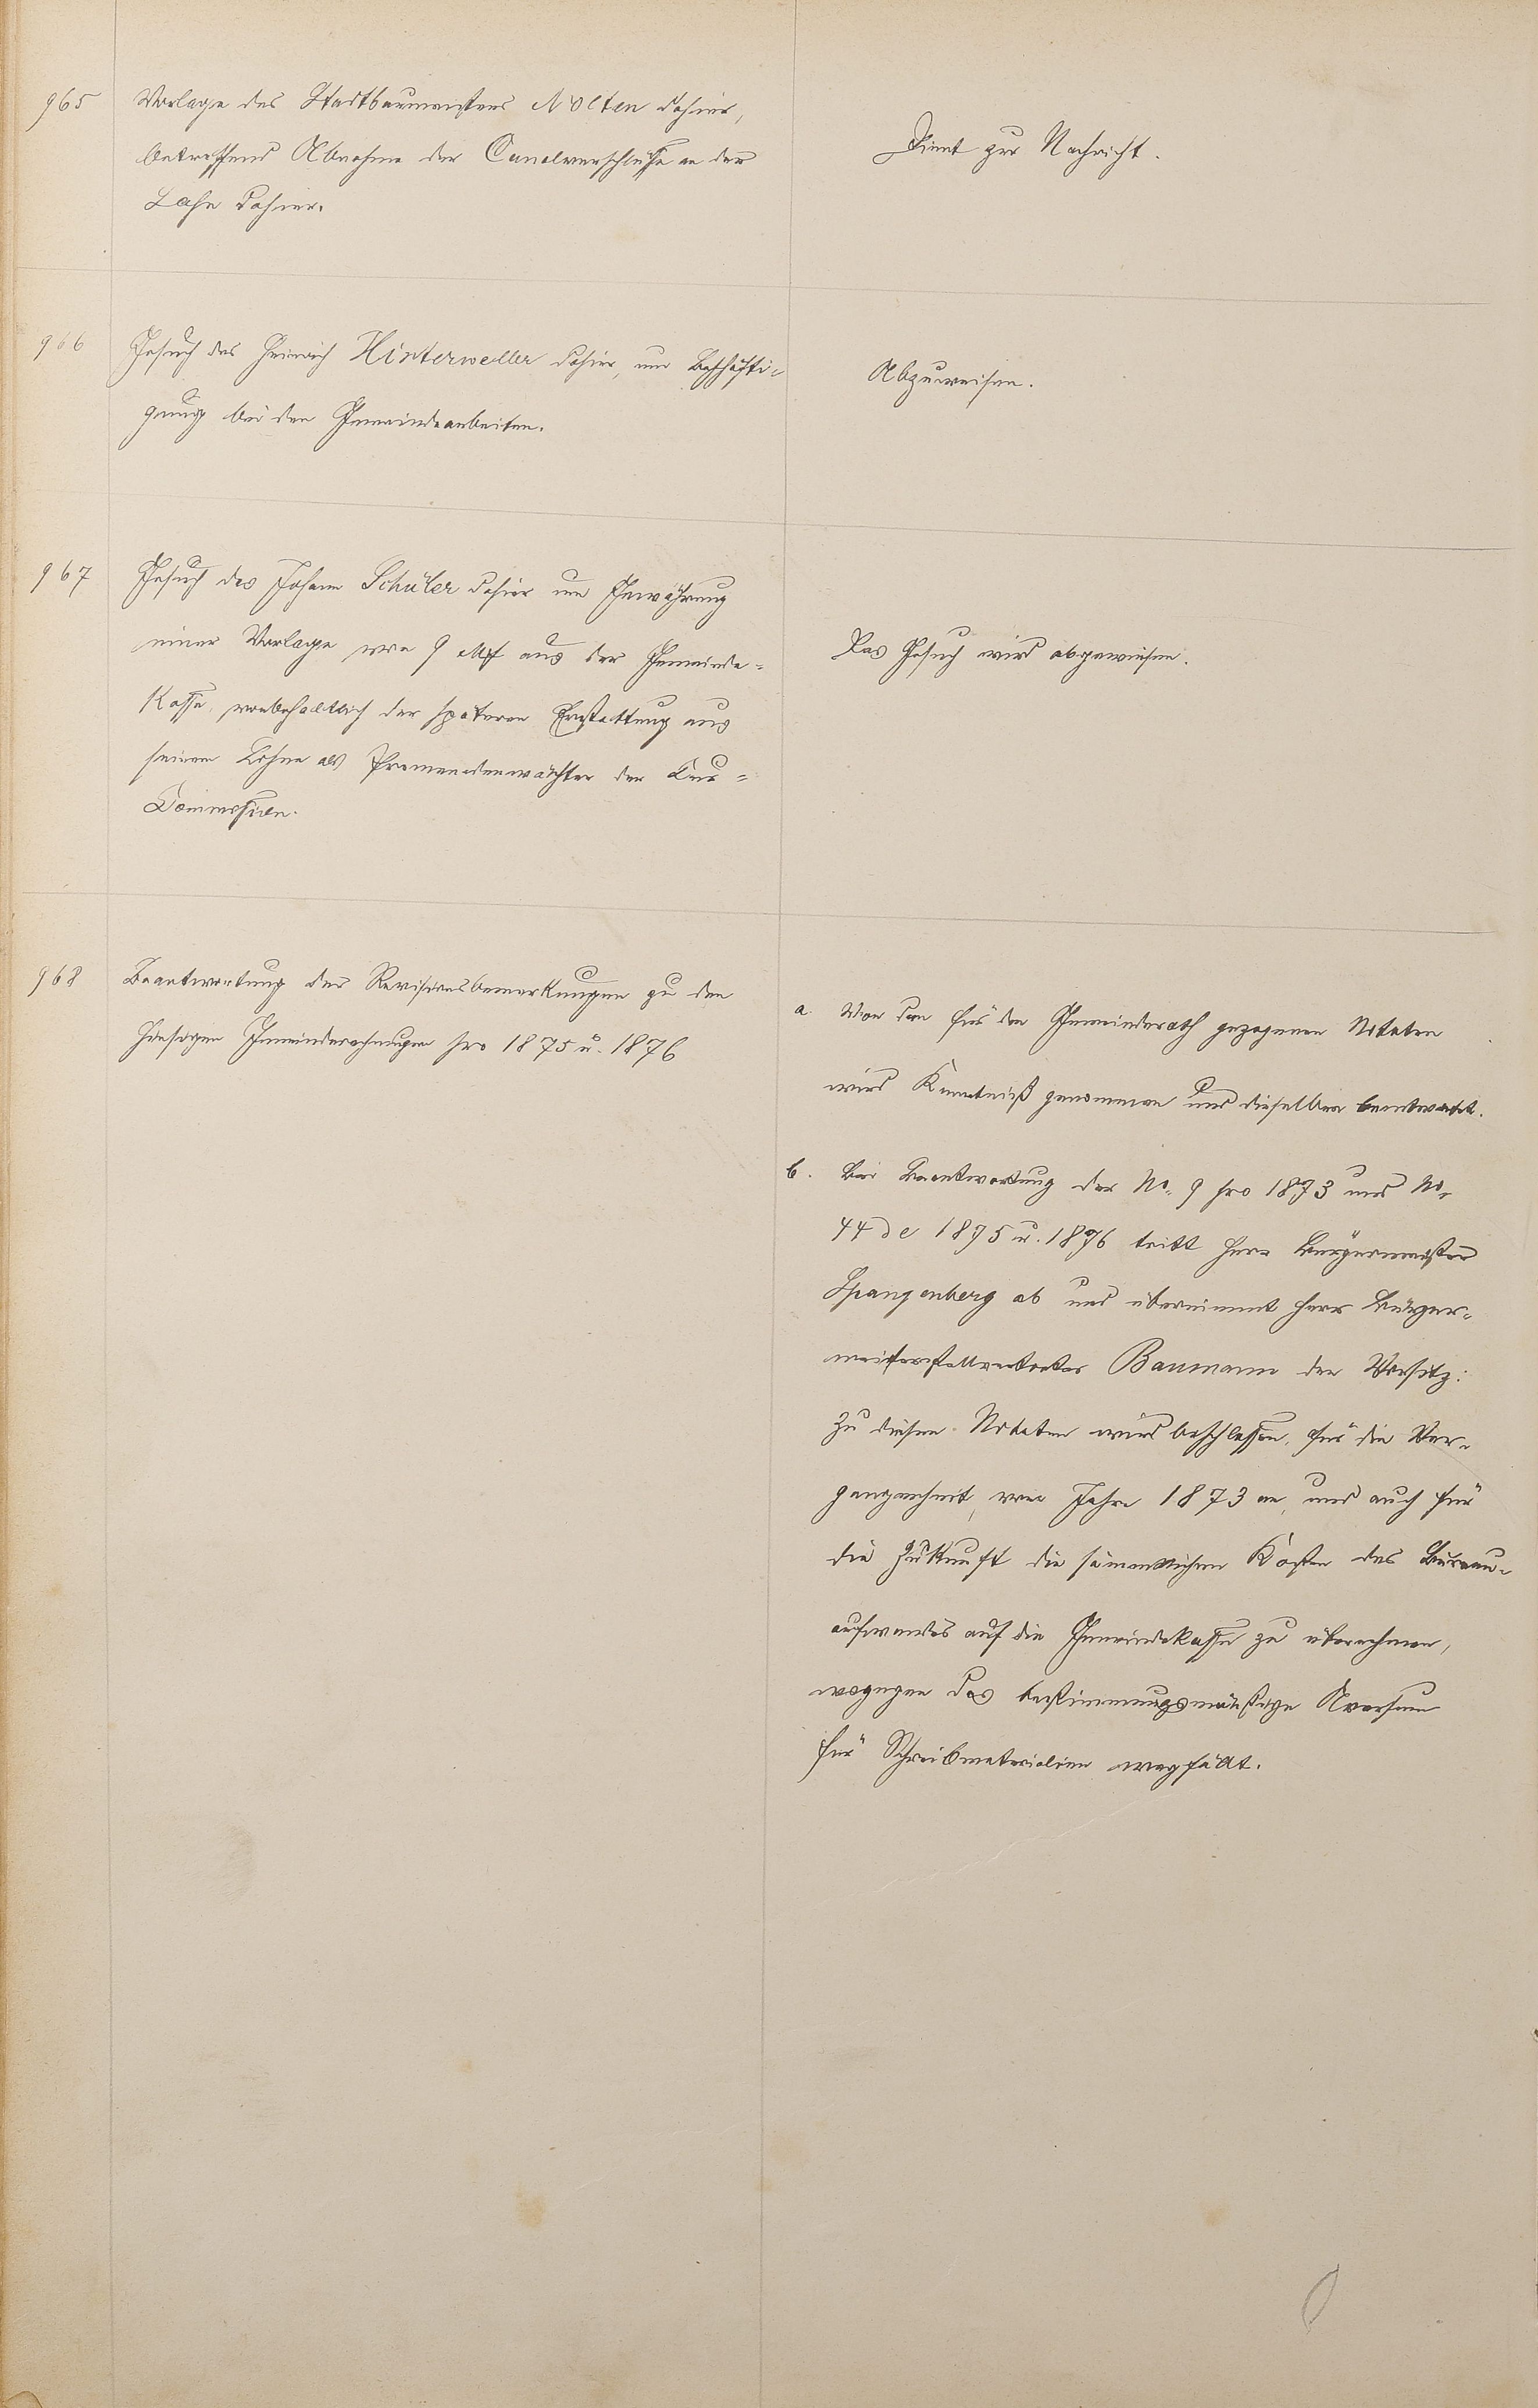 965
Vorlage des Stadtbaumeisters Nolten dahier,
betreffend Abnahme der Canalverschlüsse an der
Lahn dahier.
Dient zur Nachricht.
966
Gesuch des Heinrich Hinterweller dahier, um Beschäfti-
gung bei den Gemeindearbeiten.
Abzuweisen.
967
Gesuch des Johann Schüler dahier um Gewährung
einer Vorlage von 9 Mk aus der Gemeinde-
Kasse, vorbehaltlich der späteren Erstattung aus
seinem Lohne als Promenadenwächter der Cur-
Commission.
Das Gesuch wird abgewiesen.
968
Beantwortung der Revisionsbemerkungen zu den
hiesigen Gemeinderechnungen pro 1875 u. 1876
a. Von den für den Gemeinderath gezogenen Notaten
wird Kenntniß genommen und dieselben beantwortet.
b. Bei Beantwortung der No. 9 pro 1873 und No.
44 de 1875 u. 1876 tritt Herr Bürgermeister
Spangenberg ab und übernimmt Herr Bürger-
meisterstellvertreter Baumann den Vorsitz:
Zu diesen Notaten wird beschlossen, für die Ver-
gangenheit, vom Jahre 1873 an, und auch für
die Zukunft die sämmtlichen Kosten des Bureau-
aufwandes auf die Gemeindekasse zu übernehmen,
wogegen das bestimmungsmäßige Aversum
für Schreibmaterialien wegfällt.